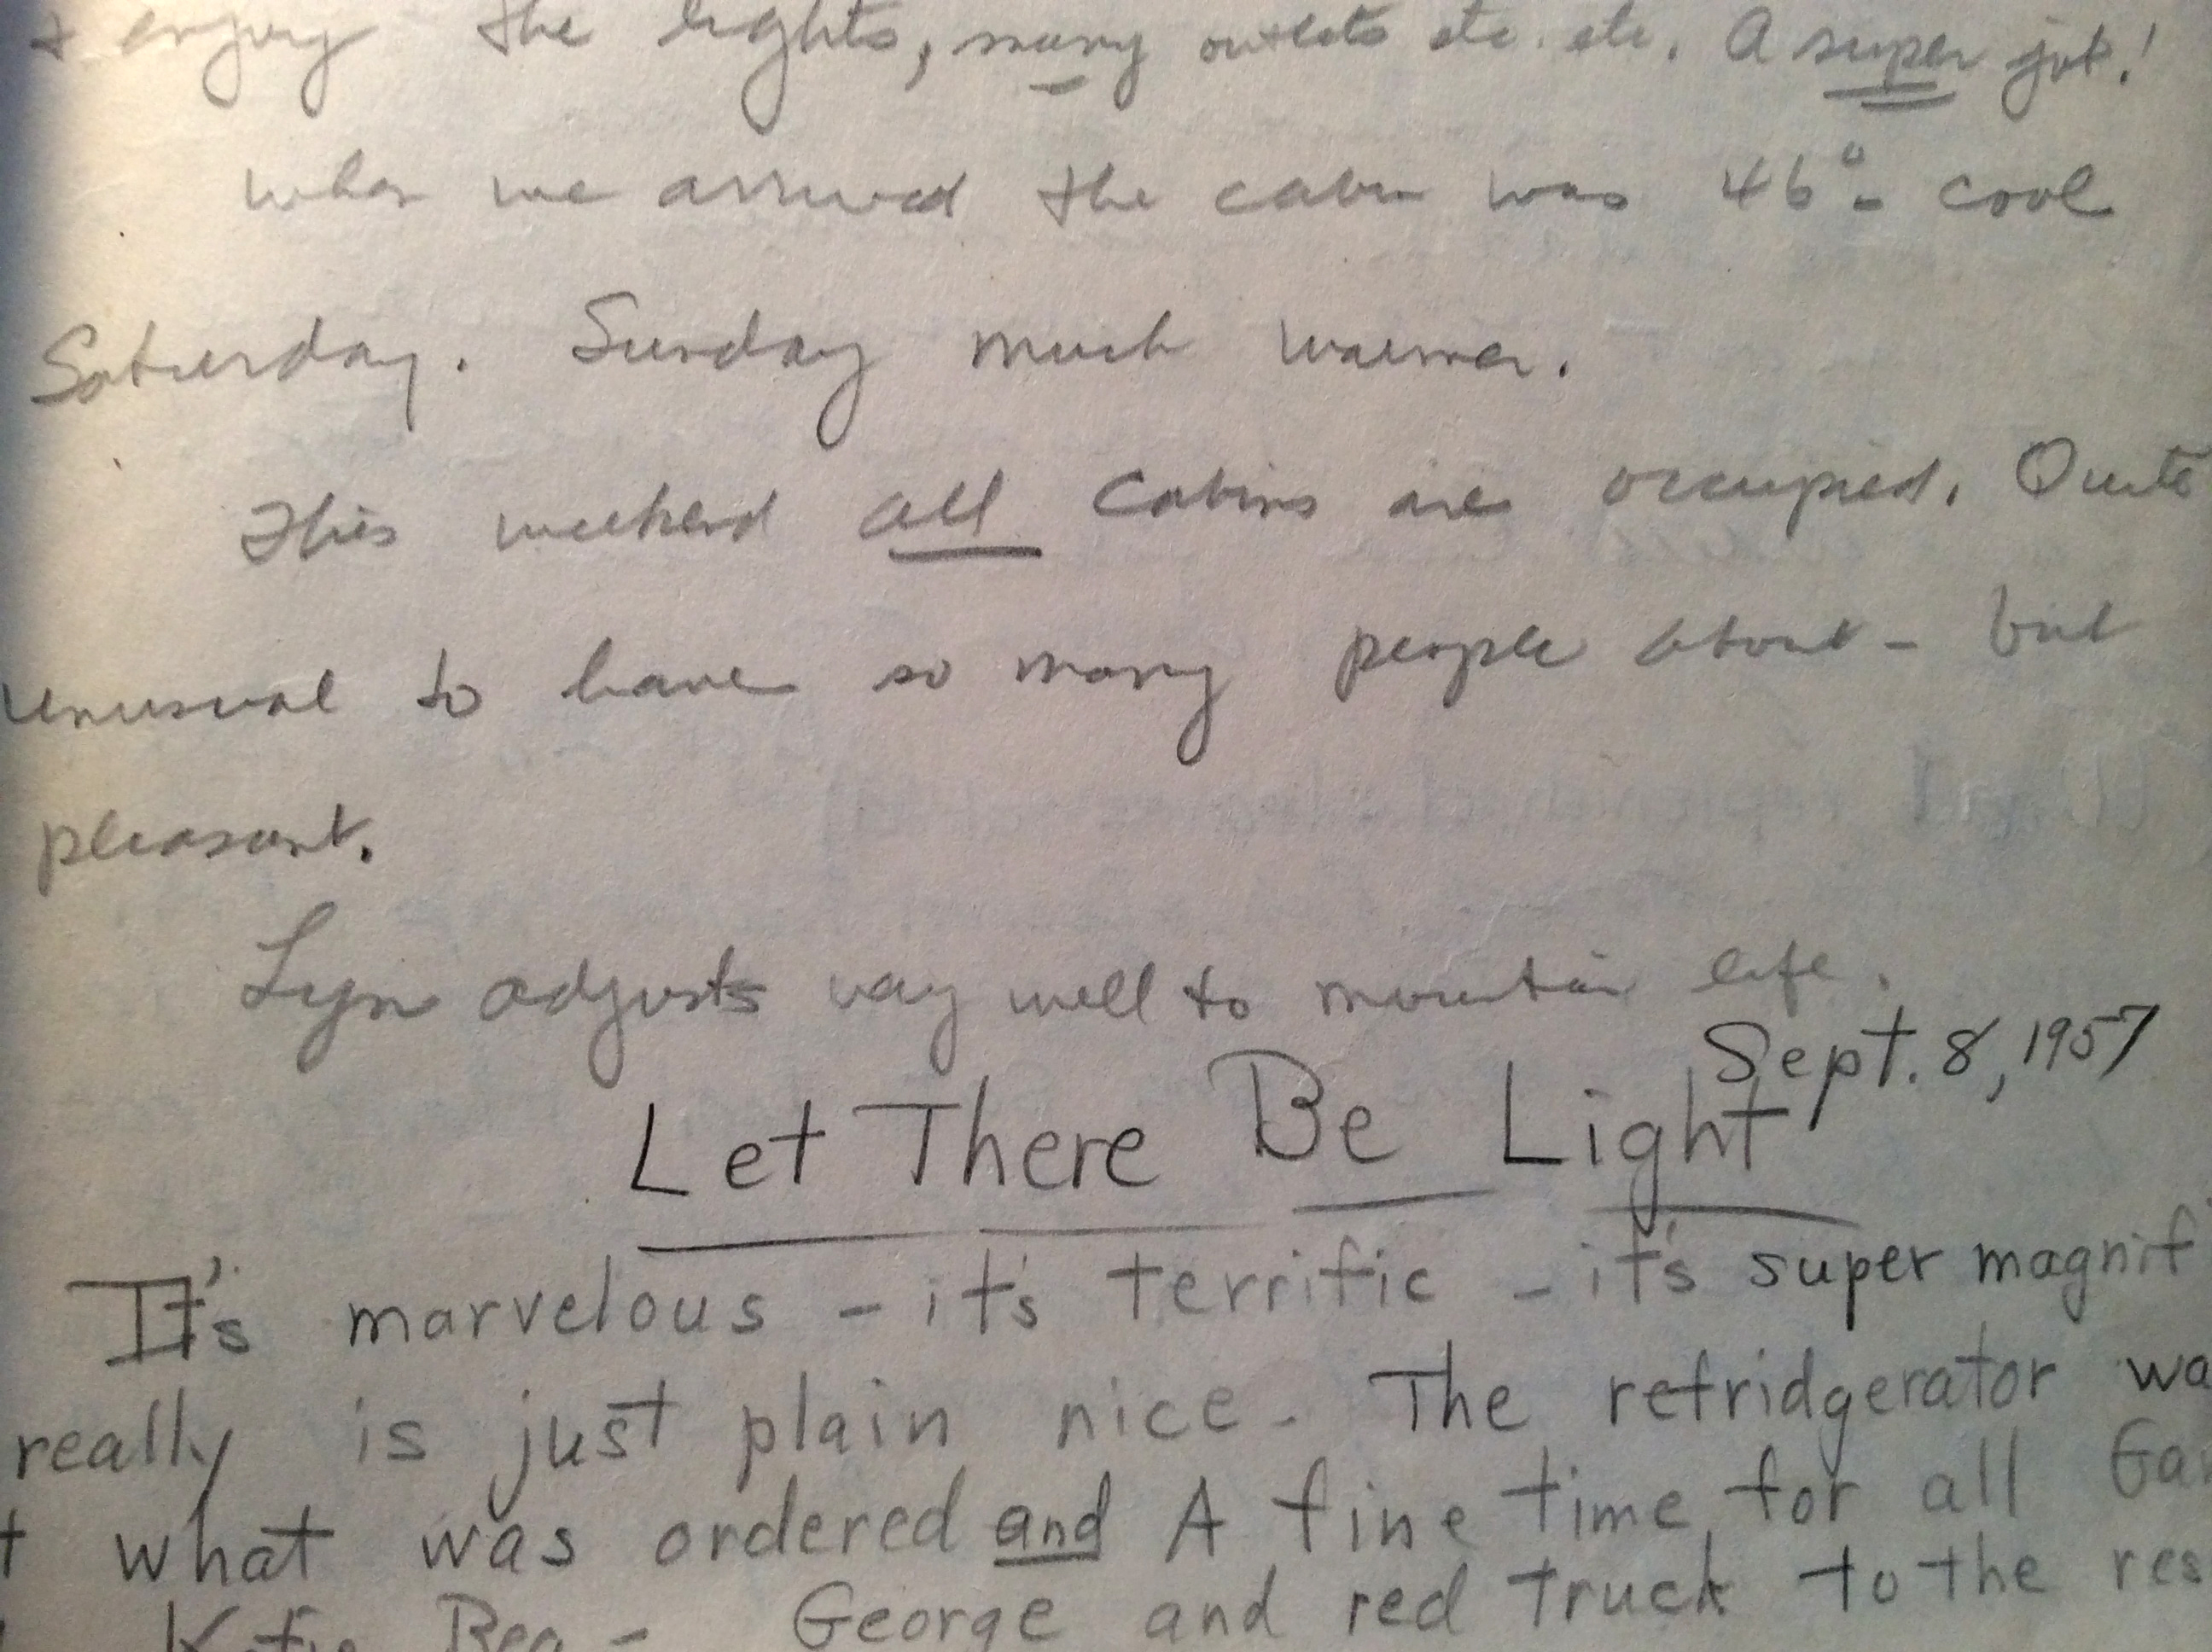 + enjoy the lights, many outlets etc. etc. A super job!
When we arrived the cabin was 46° - cool
Saturday. Sunday much warmer.
This weekend all cabins are occupied. Quite
unusual to have so many people about - but
pleasant.
Lyn adjusts very well to mountain life.
Sept. 8, 1957
Let There Be Light
It's marvelous - it's terrific - it's super magnif
really is just plain nice. The refridgerator wa
t what was ordered and A fine time for all Ga
Bea - George and red truck to the res